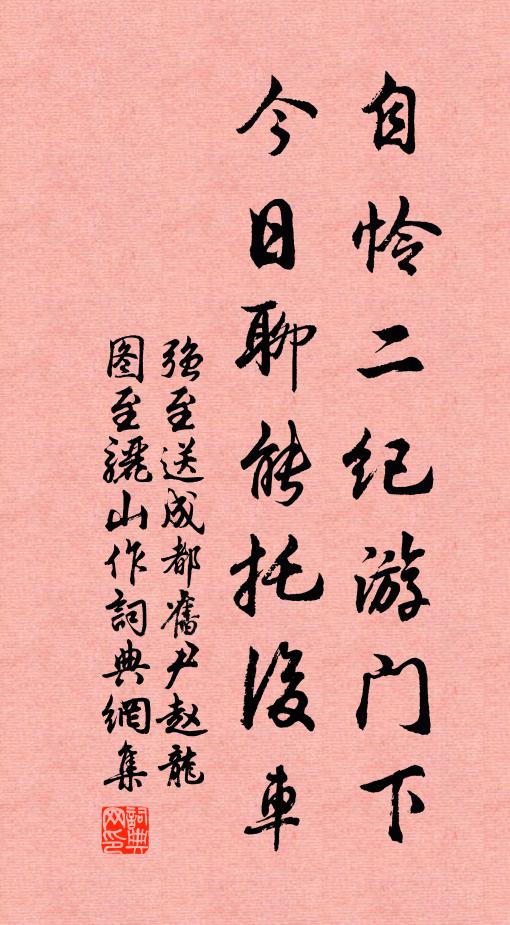 自怜二纪游门下
今日聊能托後車
强至送成都舊尹赵龍
图至驪山作詞典網集
詞典
网印